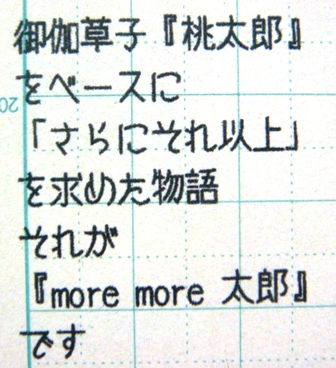 御伽草子『桃太郎』
をベースに
「さらにそれ以上」
を求めた物語
それが
『more more 太郎』
です
20